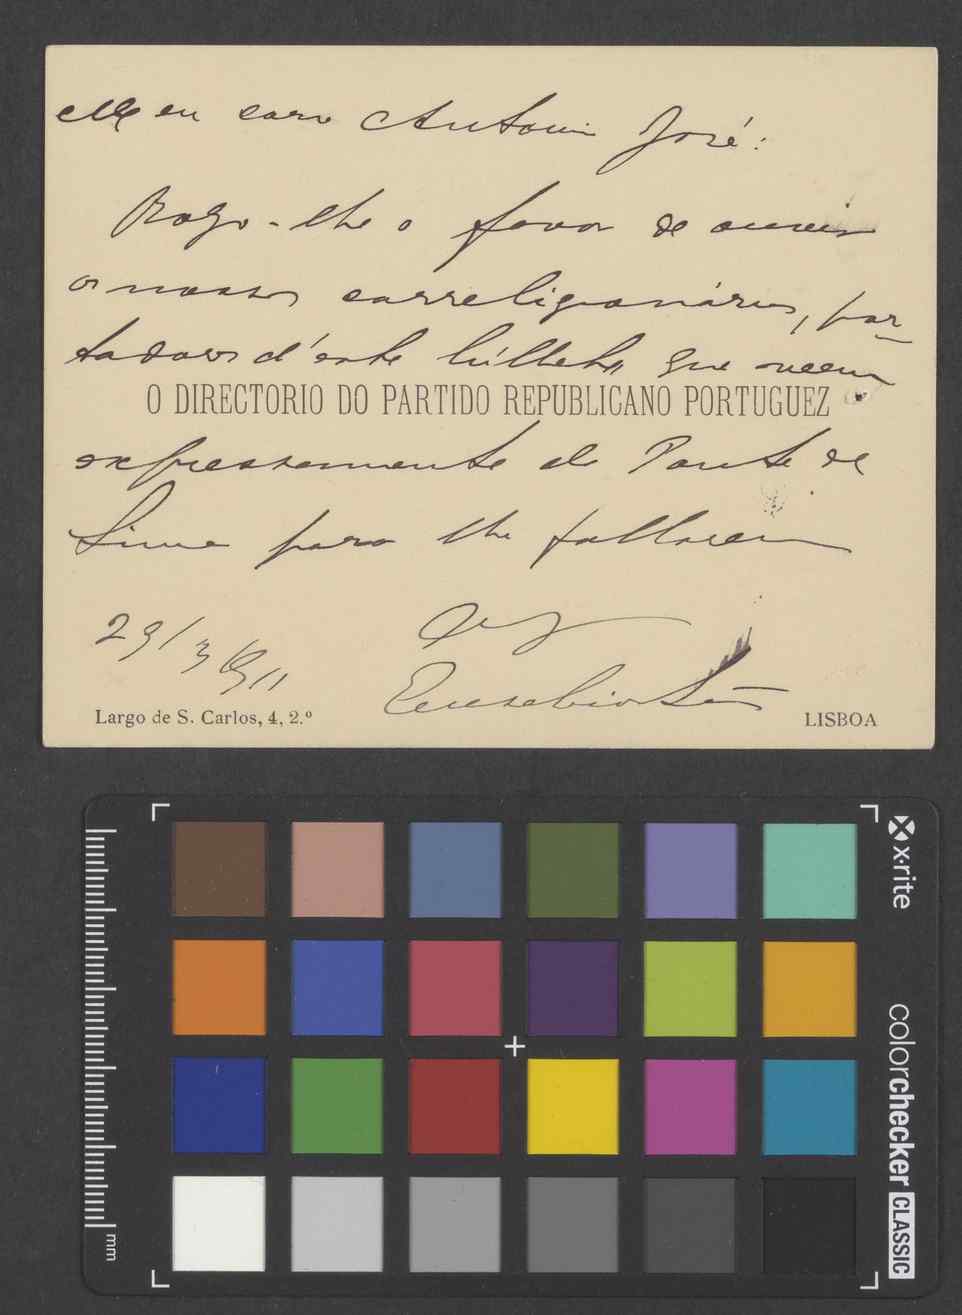 Meu caro Antonio José:
Rogo-lhe o favor de ouvir
os nossos correligionários, por-
tadores d'este bilhete, que veem
O DIRECTORIO DO PARTIDO REPUBLICANO PORTUGUEZ
expressamente de Ponte de
Lima para lhe fallarem
29/3/911
Eusebio Leão
Largo de S. Carlos, 4, 2.º
LISBOA
x·rite
colorchecker CLASSIC
mm